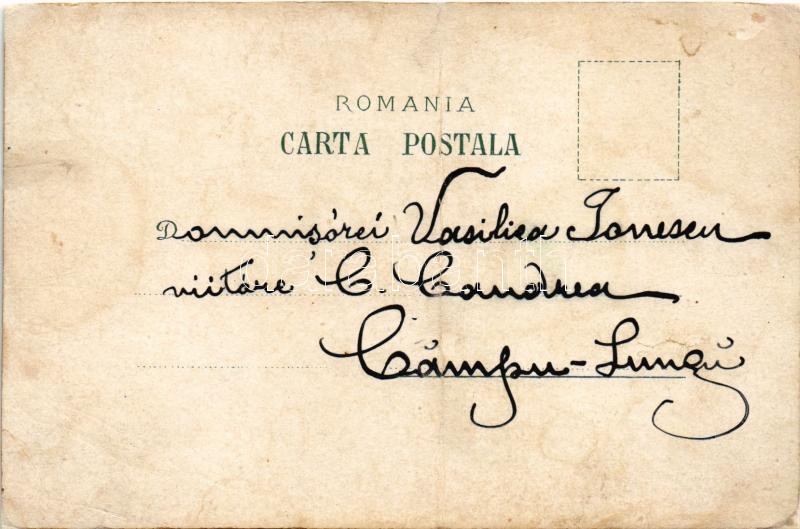 ROMANIA
CARTA POSTALA
Domnișórei Vasilica Ionescu
viitóre C. Candrea
Câmpu-Lungŭ